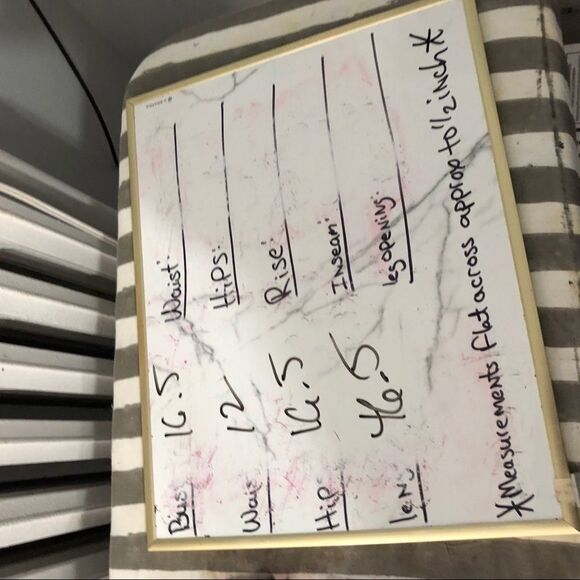 Bus 16.5
Wais 12
Hip 16.5
len 46.5
Waist:
Hips:
Rise:
Inseam:
leg opening:
*Measurements flat across approp to 1/2 inch*